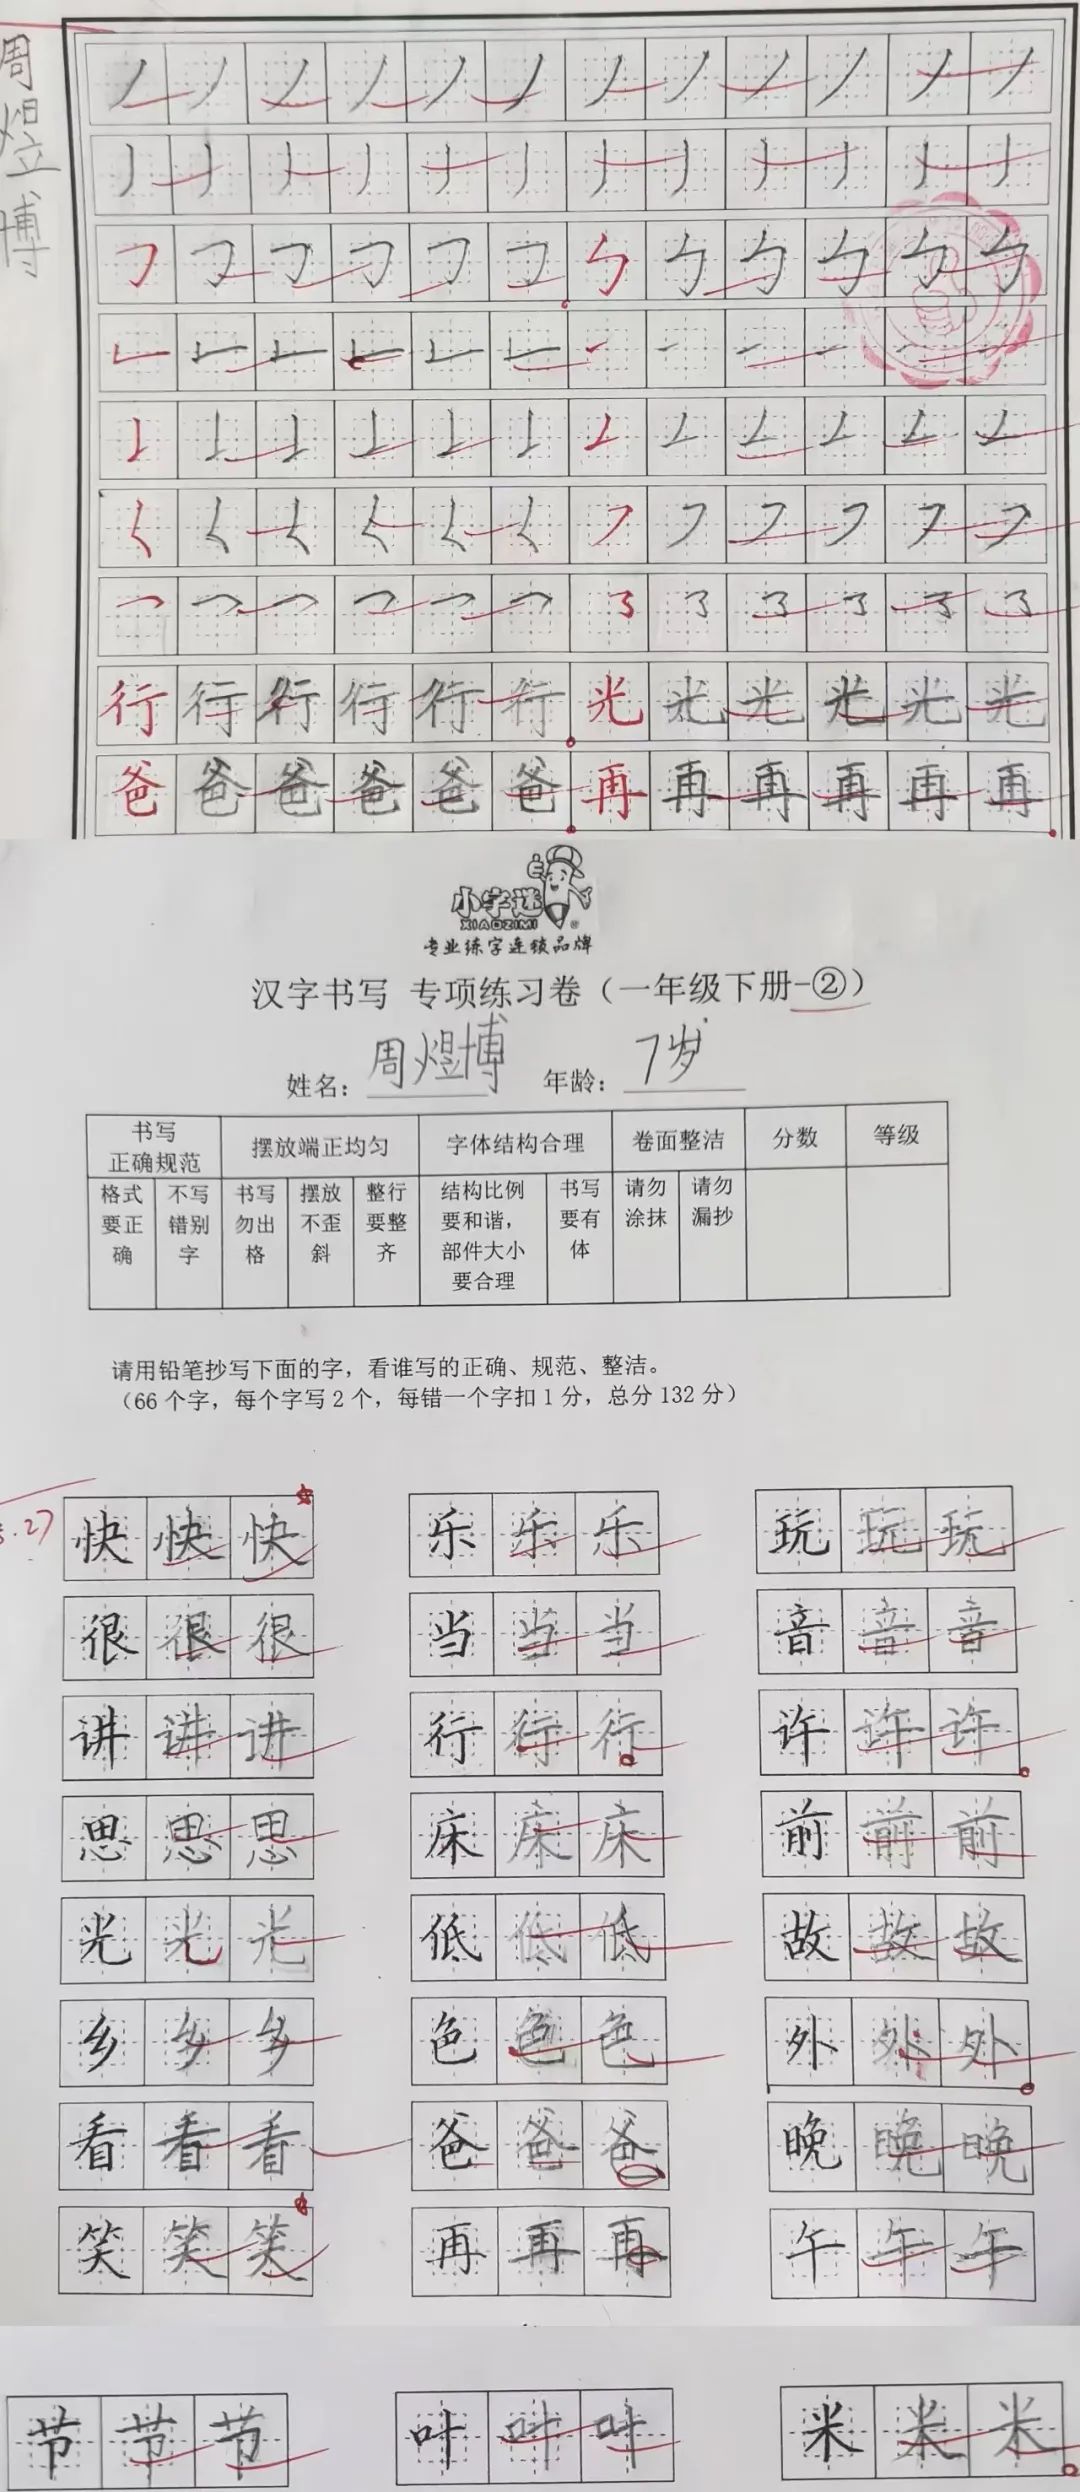 周煜博
行行行行行行光光光光光光
爸爸爸爸爸爸再再再再再再
小字迷
XIAOZIMI
专业练字连锁品牌
汉字书写 专项练习卷（一年级下册-②）
姓名：周煜博 年龄：7岁
书写正确规范 摆放端正均匀 字体结构合理 卷面整洁 分数 等级
格式要正确 不写错别字 书写勿出格 摆放不歪斜 整行要整齐 结构比例要和谐，部件大小要合理 书写要有体 请勿涂抹 请勿漏抄
请用铅笔抄写下面的字，看谁写的正确、规范、整洁。
（66个字，每个字写2个，每错一个字扣1分，总分132分）
快快快 乐乐乐 玩玩玩
很很很 当当当 音音音
讲讲讲 行行行 许许许
思思思 床床床 前前前
光光光 低低低 故故故
乡乡乡 色色色 外外外
看看看 爸爸爸 晚晚晚
笑笑笑 再再再 午午午
节节节 叶叶叶 米米米